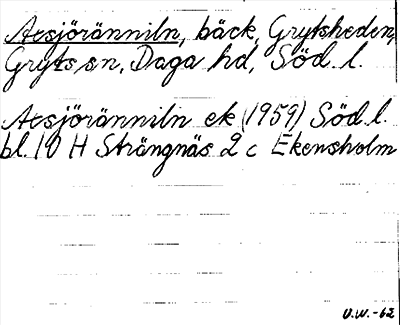 Aesjöränniln, bäck, Grytsheden,
Gryts sn, Daga hd, Söd. l.
Aesjöränniln ek (1959) Söd. l.
bl. 10 H Strängnäs 2 c Ekensholm
U.W.-62